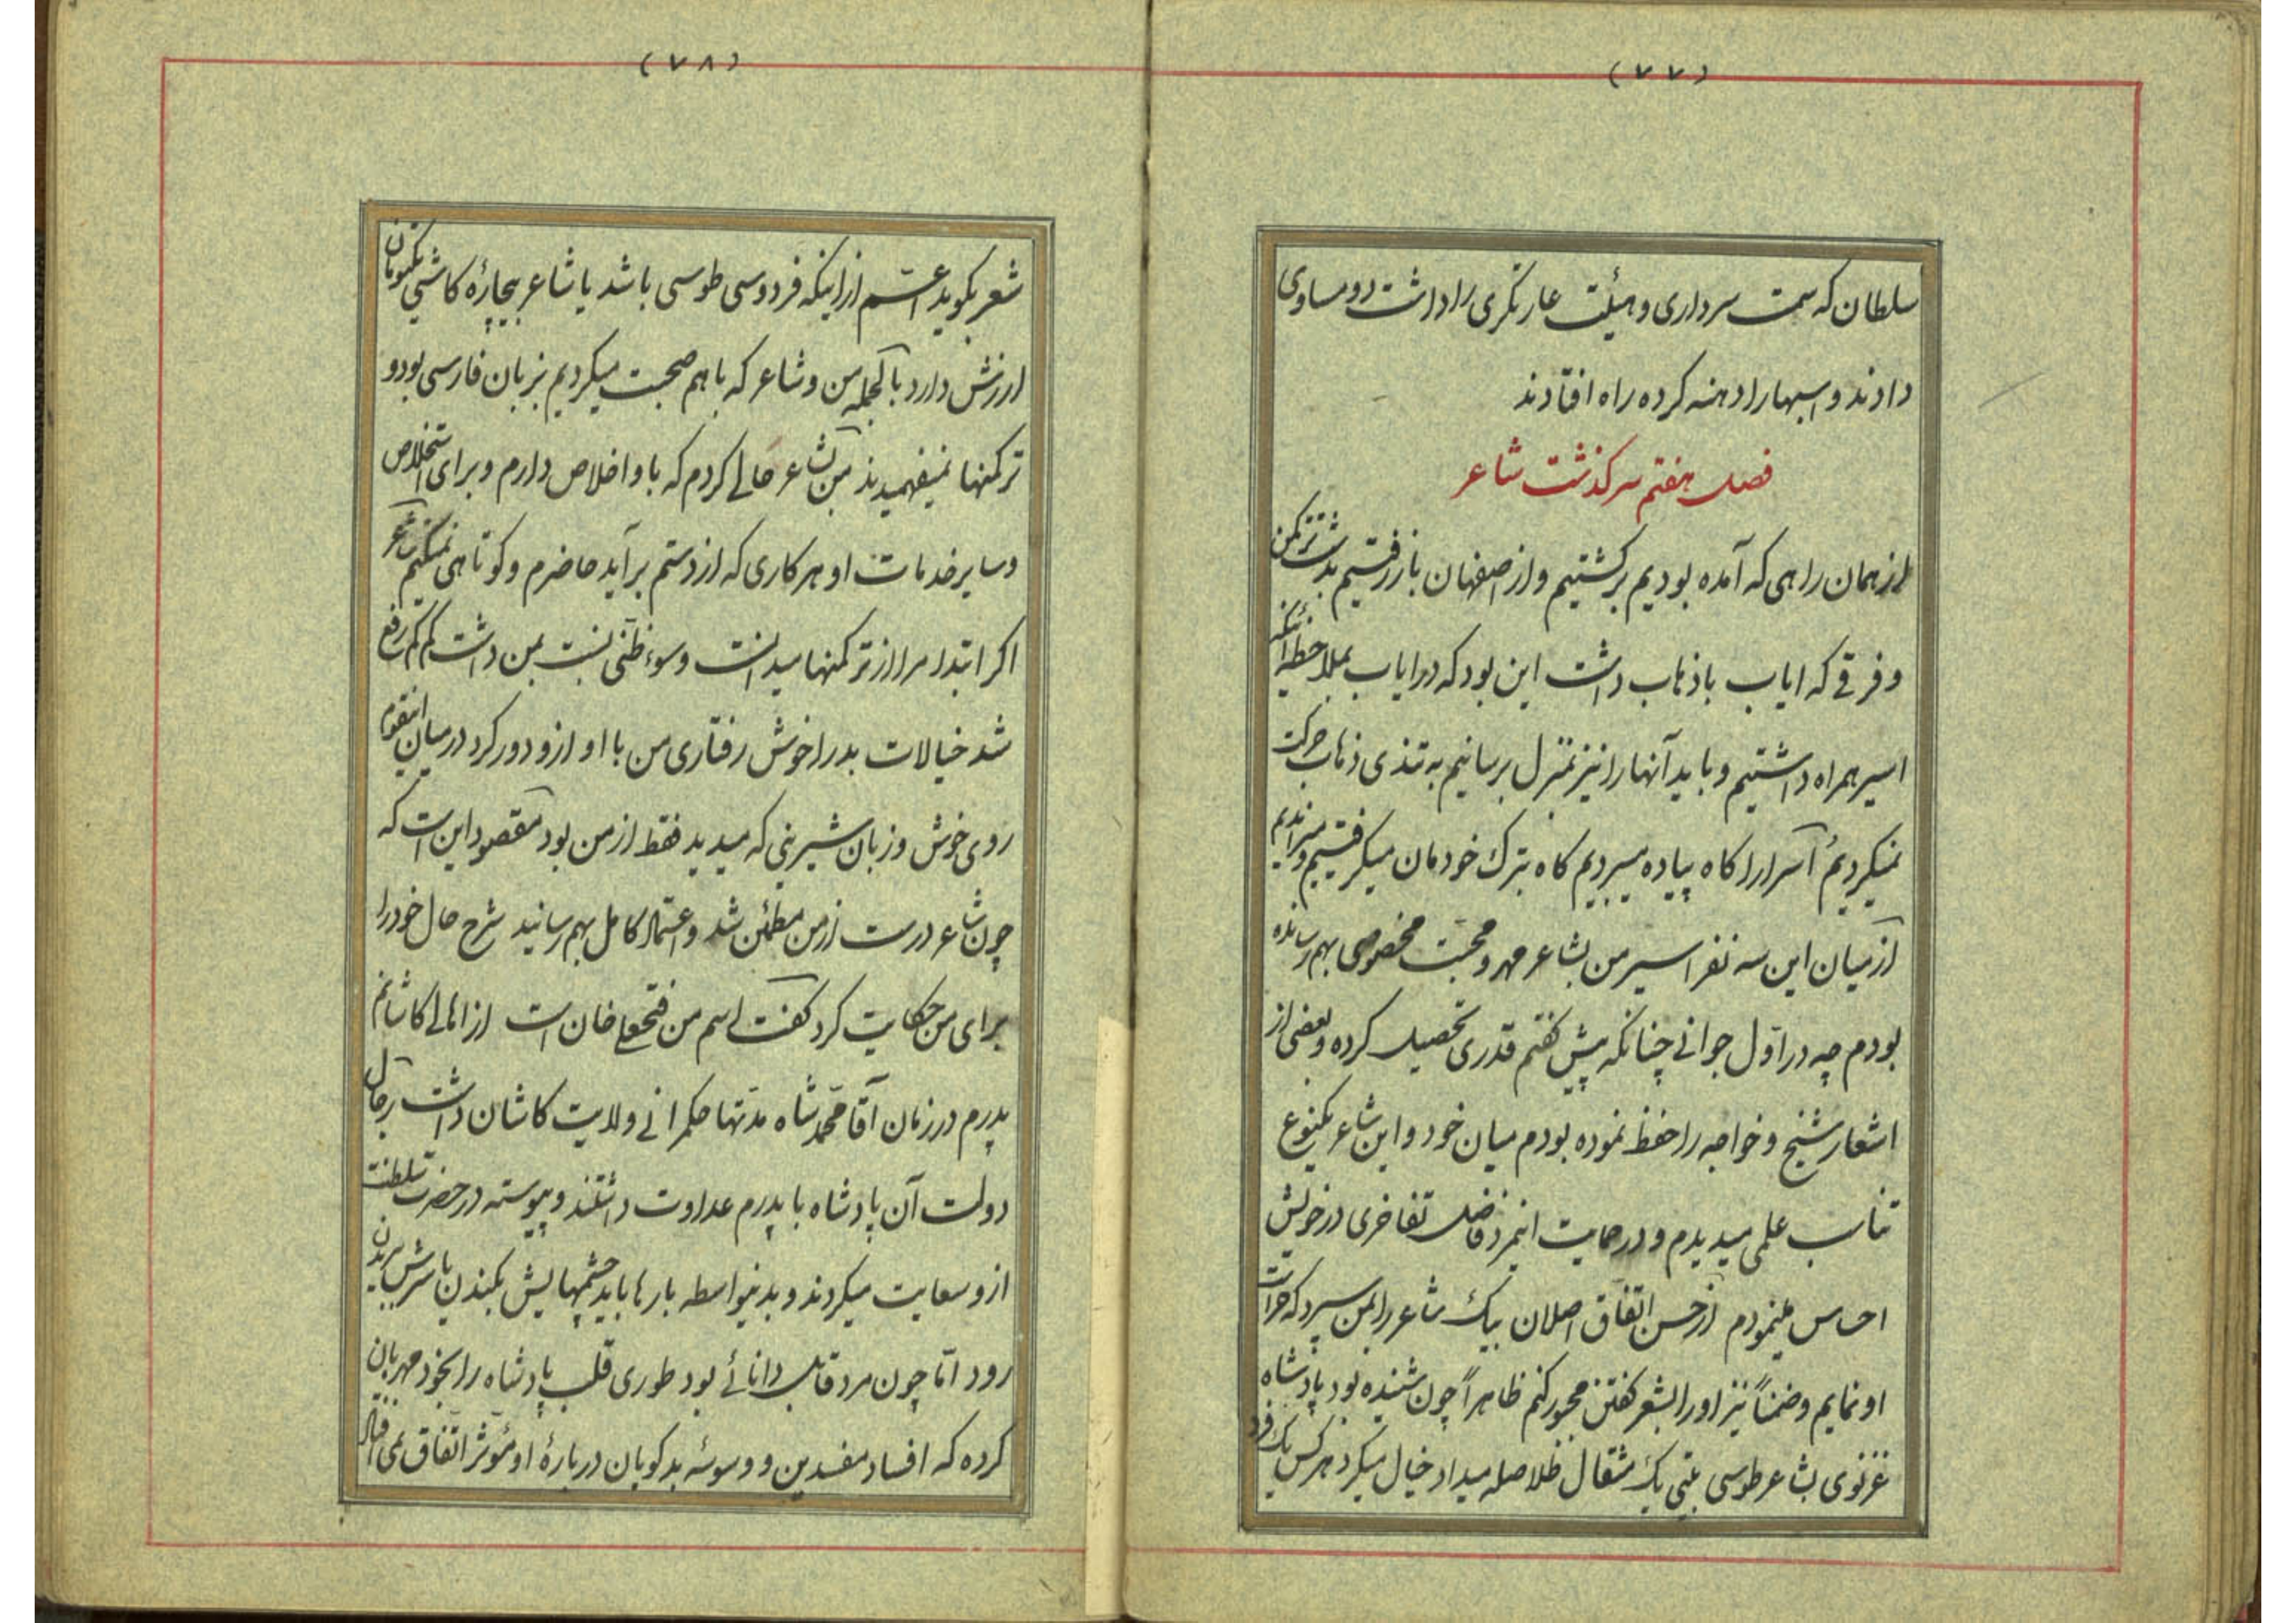 (۷۷)
سلطان که سمت سرداری و هیئت غارتگری را داشت دو مساوی
دادند و اسبها را دهنه کرده راه افتادند
فصل هفتم سرگذشت شاعر
از همان راهی که آمده بودیم برگشتیم و از اصفهان باز رفتیم بدشت ترکمن
و فرقی که ایاب با ذهاب داشت این بود که در ایاب بملاحظه اینکه
اسیر همراه داشتیم و باید آنها را نیز بمنزل برسانیم به تندی ذهاب حرکت
نمیکردیم اسرا را کاه پیاده میبردیم کاه بترک خودمان میکرفتیم و میراندیم
از میان این سه نفر اسیر من بشاعر مهر و محبت مخصوصی بهم رسانده
بودم چه در اول جوانی چنانکه پیش کفتم قدری تحصیل کرده و بعضی از
اشعار شیخ و خواجه را حفظ نموده بودم میان خود و این شاعر یکنوع
تناسب علمی میدیدم و در حمایت اینمرد فاضل تفاخری در خویش
احساس مینمودم از حسن اتفاق اصلان بیک شاعر را بمن سپرد که حراست
او نمایم و ضمناً نیز او را بشعر کفتن مجبور کنم ظاهراً چون شنیده بود پادشاه
غزنوی بشاعر طوسی بیتی یک مثقال طلا صله میداد خیال میکرد هر کس یک فرد
(۷۸)
شعر بکوید اعم از اینکه فردوسی طوسی باشد یا شاعر بیچارهٔ کاشی یکتومان
ارزش دارد بالجمله من و شاعر که با هم صحبت میکردیم بزبان فارسی بود و
ترکمنها نمیفهمیدند من بشاعر حالی کردم که باو اخلاص دارم و برای استخلاص
و سایر خدمات او هر کاری که از دستم برآید حاضرم و کوتاهی نمیکنم شاعر
اکر ابتدا مرا از ترکمنها میدانست و سوءظنی نسبت بمن داشت کم کم رفع
شد خیالات بد را خوش رفتاری من با او ازو دور کرد در میان اینقوم
روی خوش و زبان شیرینی که میدید فقط از من بود مقصود این است که
چون شاعر درست از من مطمئن شد و اعتماد کامل بهم رسانید شرح حال خود را
برای من حکایت کرد کفت اسم من فتحعلی خان است از اهالی کاشانم
پدرم در زمان آقا محمد شاه مدتها حکمرانی ولایت کاشان داشت رجال
دولت آن پادشاه با پدرم عداوت داشتند و پیوسته در حضرت سلطنت
ازو سعایت میکردند و بدینواسطه بارها باید چشمهایش بکندن یا سرش ببریدن
رود اما چون مرد قابل دانائی بود طوری قلب پادشاه را بخود مهربان
کرده که افساد مفسدین و وسوسهٔ بدکویان دربارهٔ او مؤثر اتفاق نمی افتاد